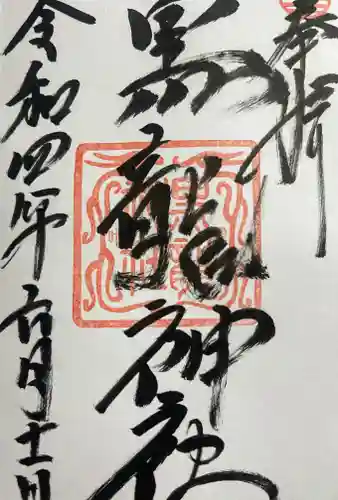 奉拝
黒龍神社
令和四年六月十一日